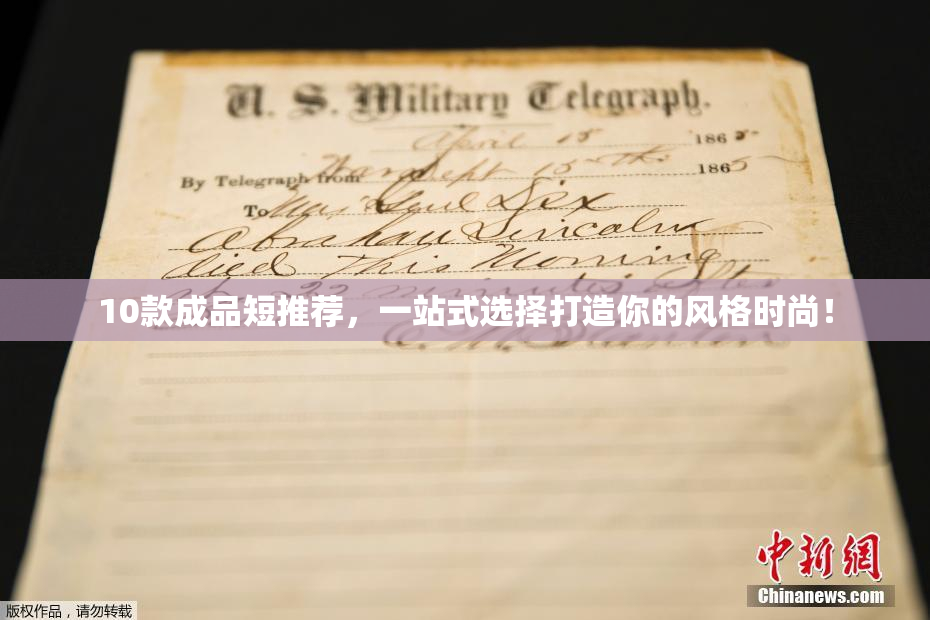 U. S. Military Telegraph.
April 15 1865
By Telegraph from War Dept 15th 1865
To Maj Genl Dix
Abraham Lincoln
died This Morning
22 minutes after
10款成品短推荐，一站式选择打造你的风格时尚！
E. M. Stanton
中新网
Chinanews.com
版权作品，请勿转载